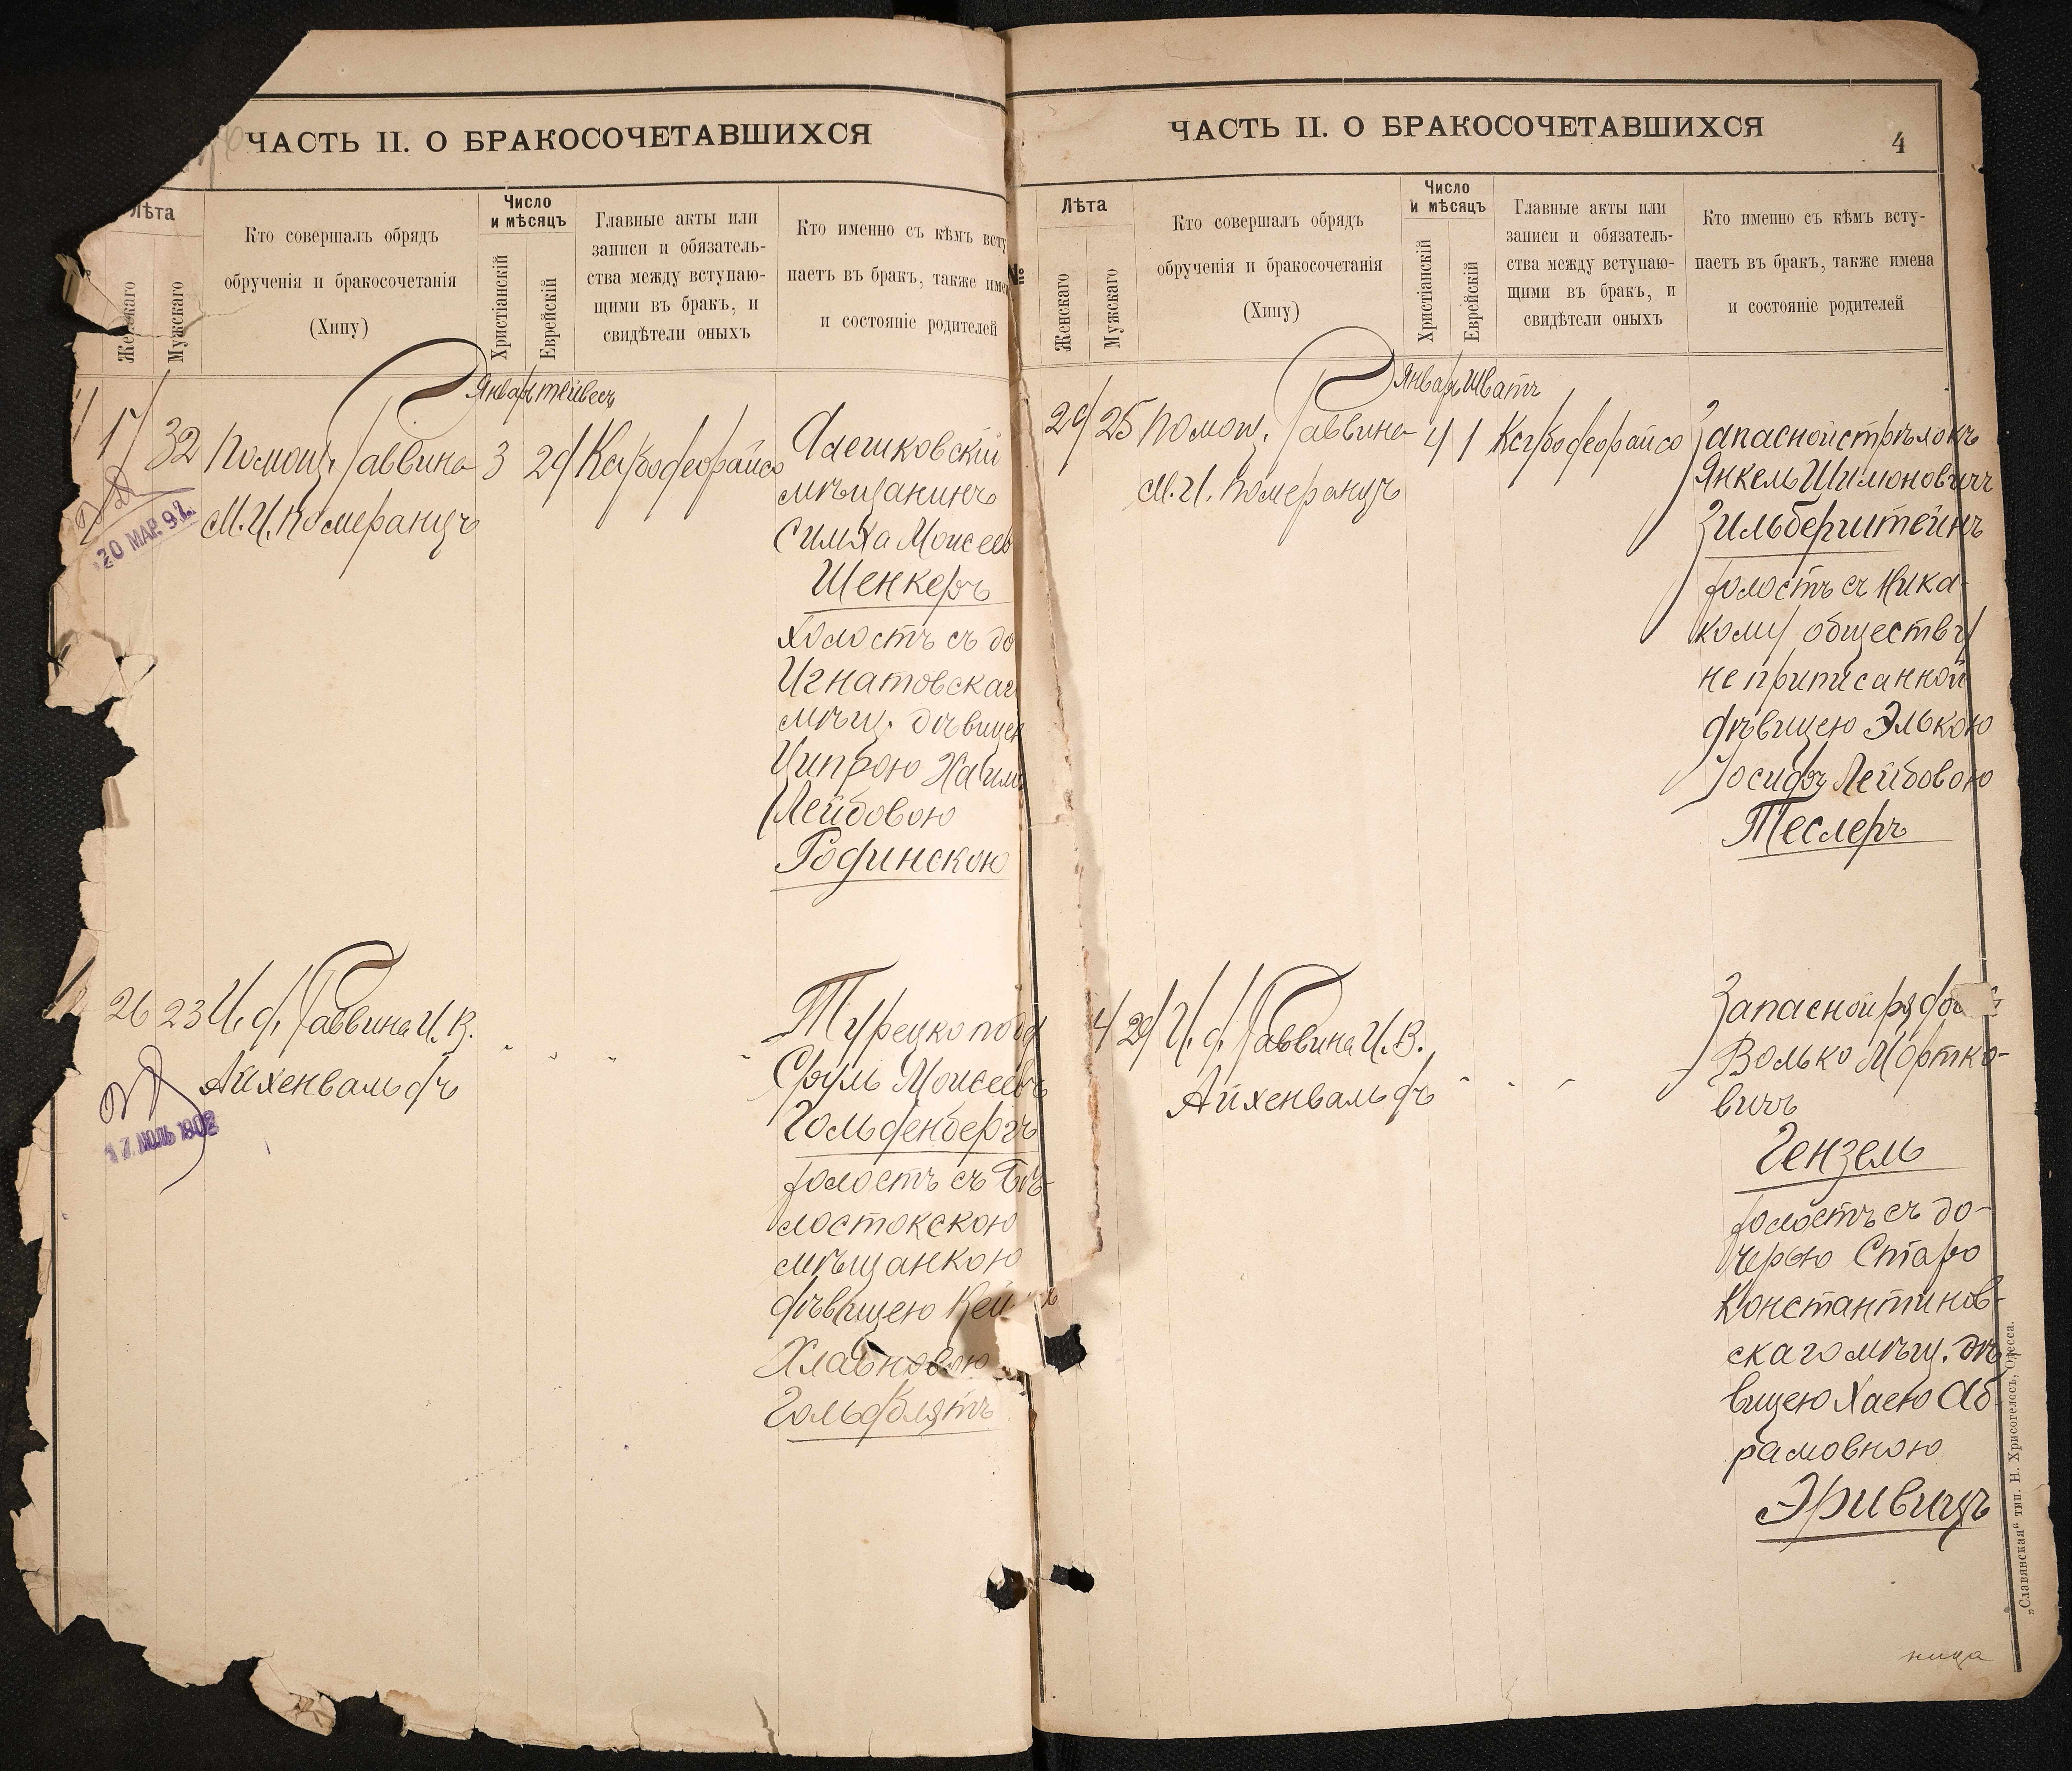 ЧАСТЬ II. О БРАКОСОЧЕТАВШИХСЯ
Лѣта
Женскаго
Мужскаго
Кто совершалъ обрядъ
обрученія и бракосочетанія
(Хипу)
Число
и мѣсяцъ
Христіанскій
Еврейскій
Главные акты или
записи и обязатель-
ства между вступаю-
щими въ бракъ, и
свидѣтели оныхъ
Кто именно съ кѣмъ всту
паетъ въ бракъ, также име
и состояніе родителей
Январь тейвесъ
32 Помощ. Раввина 3 29 Ксубо
М. И. Померанцъ
20 МАР. 97
Алешковскій
мѣщанинъ
Симха Моисеев
Шенкеръ
холостъ съ до
Игнатовскаг
мѣщ. дѣвицею
Ципрою Хаим
Лейбовою
Родинскою
26 23 И. д. Раввина И. В.
Айхенвальдъ
17 ИЮЛЬ 1902
Турецко подд
Сруль Моисеевъ
Гольденбергъ
холостъ съ Бѣ-
лостокскою
мѣщанкою
дѣвицею Кей
Гольдблятъ
ЧАСТЬ II. О БРАКОСОЧЕТАВШИХСЯ
4
№
Лѣта
Женскаго
Мужскаго
Кто совершалъ обрядъ
обрученія и бракосочетанія
(Хипу)
Число
и мѣсяцъ
Христіанскій
Еврейскій
Главные акты или
записи и обязатель-
ства между вступаю-
щими въ бракъ, и
свидѣтели оныхъ
Кто именно съ кѣмъ всту-
паетъ въ бракъ, также имена
и состояніе родителей
Январь Шватъ
29 25 Помощ. Раввина 4 1 Ксубо
М. И. Померанцъ
Запасной стрѣлокъ
Янкель Шимоновичъ
Зильберштейнъ
холостъ съ Ника-
кому обществу
не приписанной
дѣвицею Элькою
Іосифъ Лейбовою
Теслеръ
29 И. д. Раввина И. В.
Айхенвальдъ
Запасной рядово
Волько Мортко-
вичъ
Гензель
холостъ съ до-
черью Старо
Константинов-
скаго мѣщ. дѣ
вицею Хаею Аб-
рамовною
Эривицъ
„Славянская“ тип. Н. Хрисогелосъ, Одесса.
ница